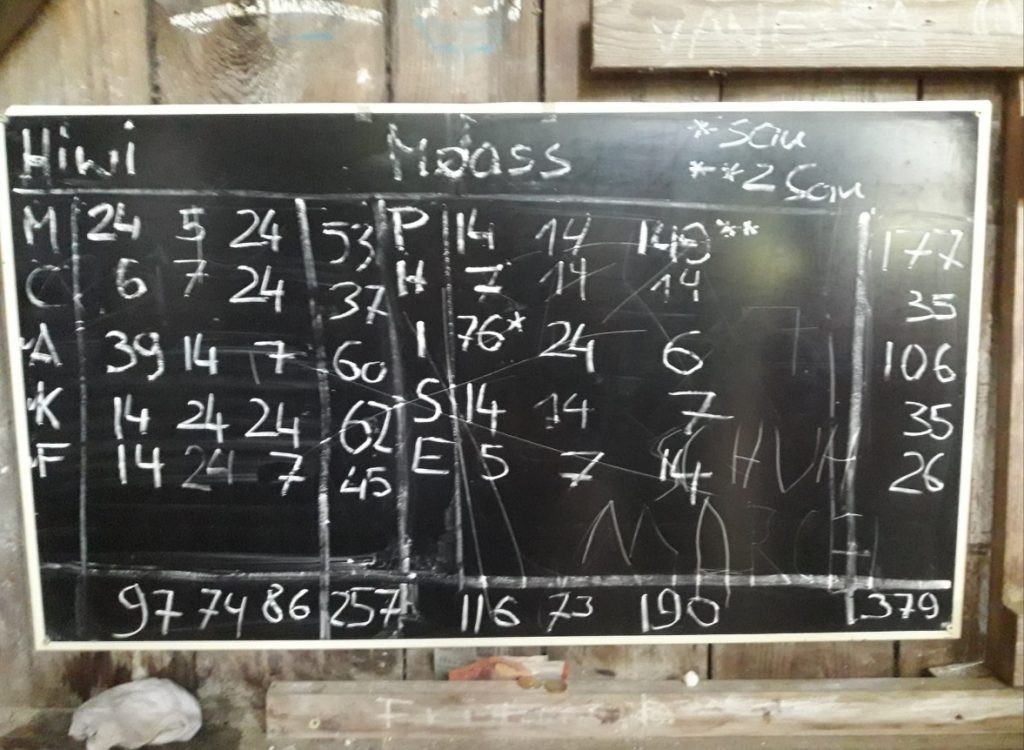 Hiwi Moass *Sau
**2 Sau
M 24 5 24 53 P 14 14 149** 177
C 6 7 24 37 H 7 14 14 35
A 39 14 7 60 I 76* 24 6 106
K 14 24 24 62 S 14 14 7 35
F 14 24 7 45 E 5 7 14 26
97 74 86 257 116 73 190 379